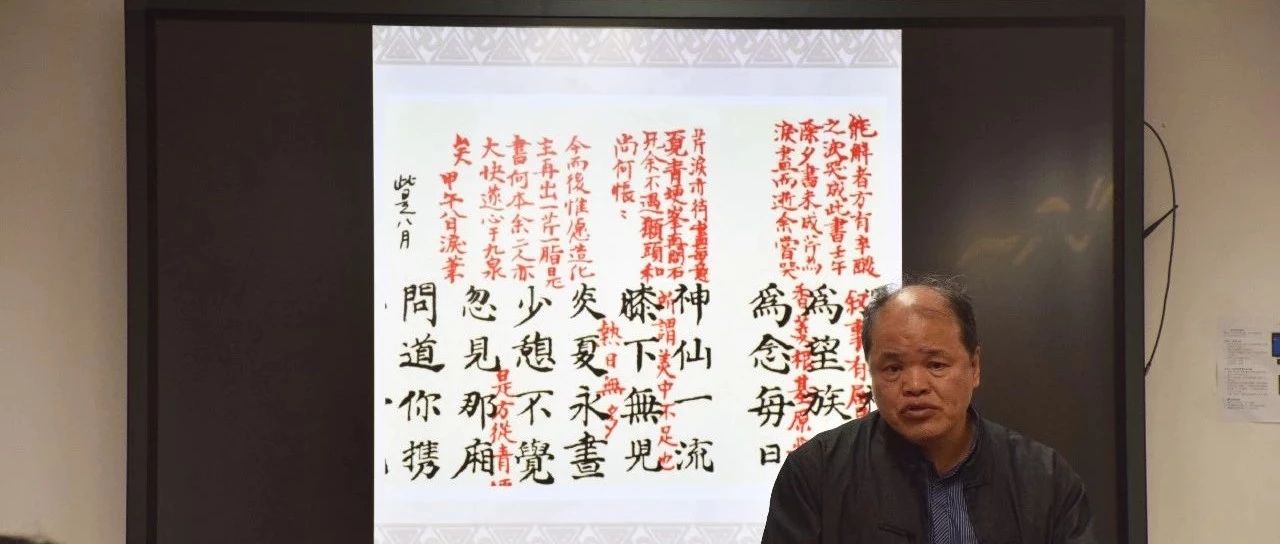 能解者方有辛酸
之淚哭成此書壬午
除夕書未成芹為
淚盡而逝余嘗哭
芹淚亦待盡每意
覓青埂峯再問石
兄余不遇獺頭和
尚何悵〻
今而後惟愿造化
主再出一芹一脂是
書何本余二人亦
大快遂心于九泉
矣甲午八日淚筆
此是八月
敘事有層
為望族
香菱根基原
為念每日
神仙一流
所謂美中不足也
膝下無児
熱日無多
炎夏永晝
少憩不覺
是方從青
忽見那廂
問道你携